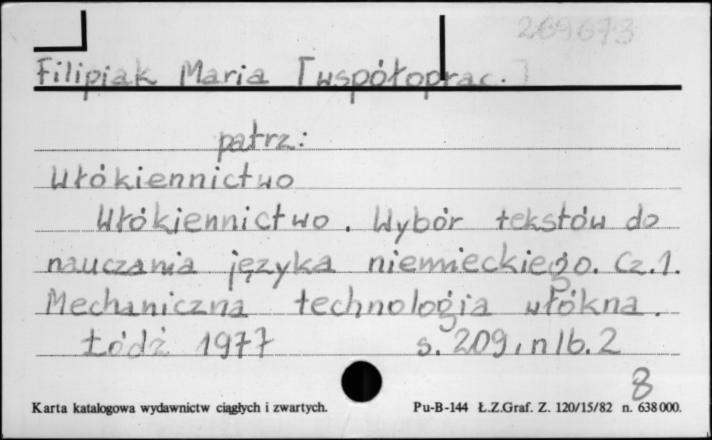 269673
Filipiak Maria [współoprac.]
patrz:
Włókiennictwo
Włókiennictwo. Wybór tekstów do
nauczania języka niemieckiego. Cz.1.
Mechaniczna technologia włókna.
Łódź 1977 s. 209, nlb. 2
8
Karta katalogowa wydawnictw ciągłych i zwartych. Pu-B-144 Ł.Z.Graf. Z. 120/15/82 n. 638000.